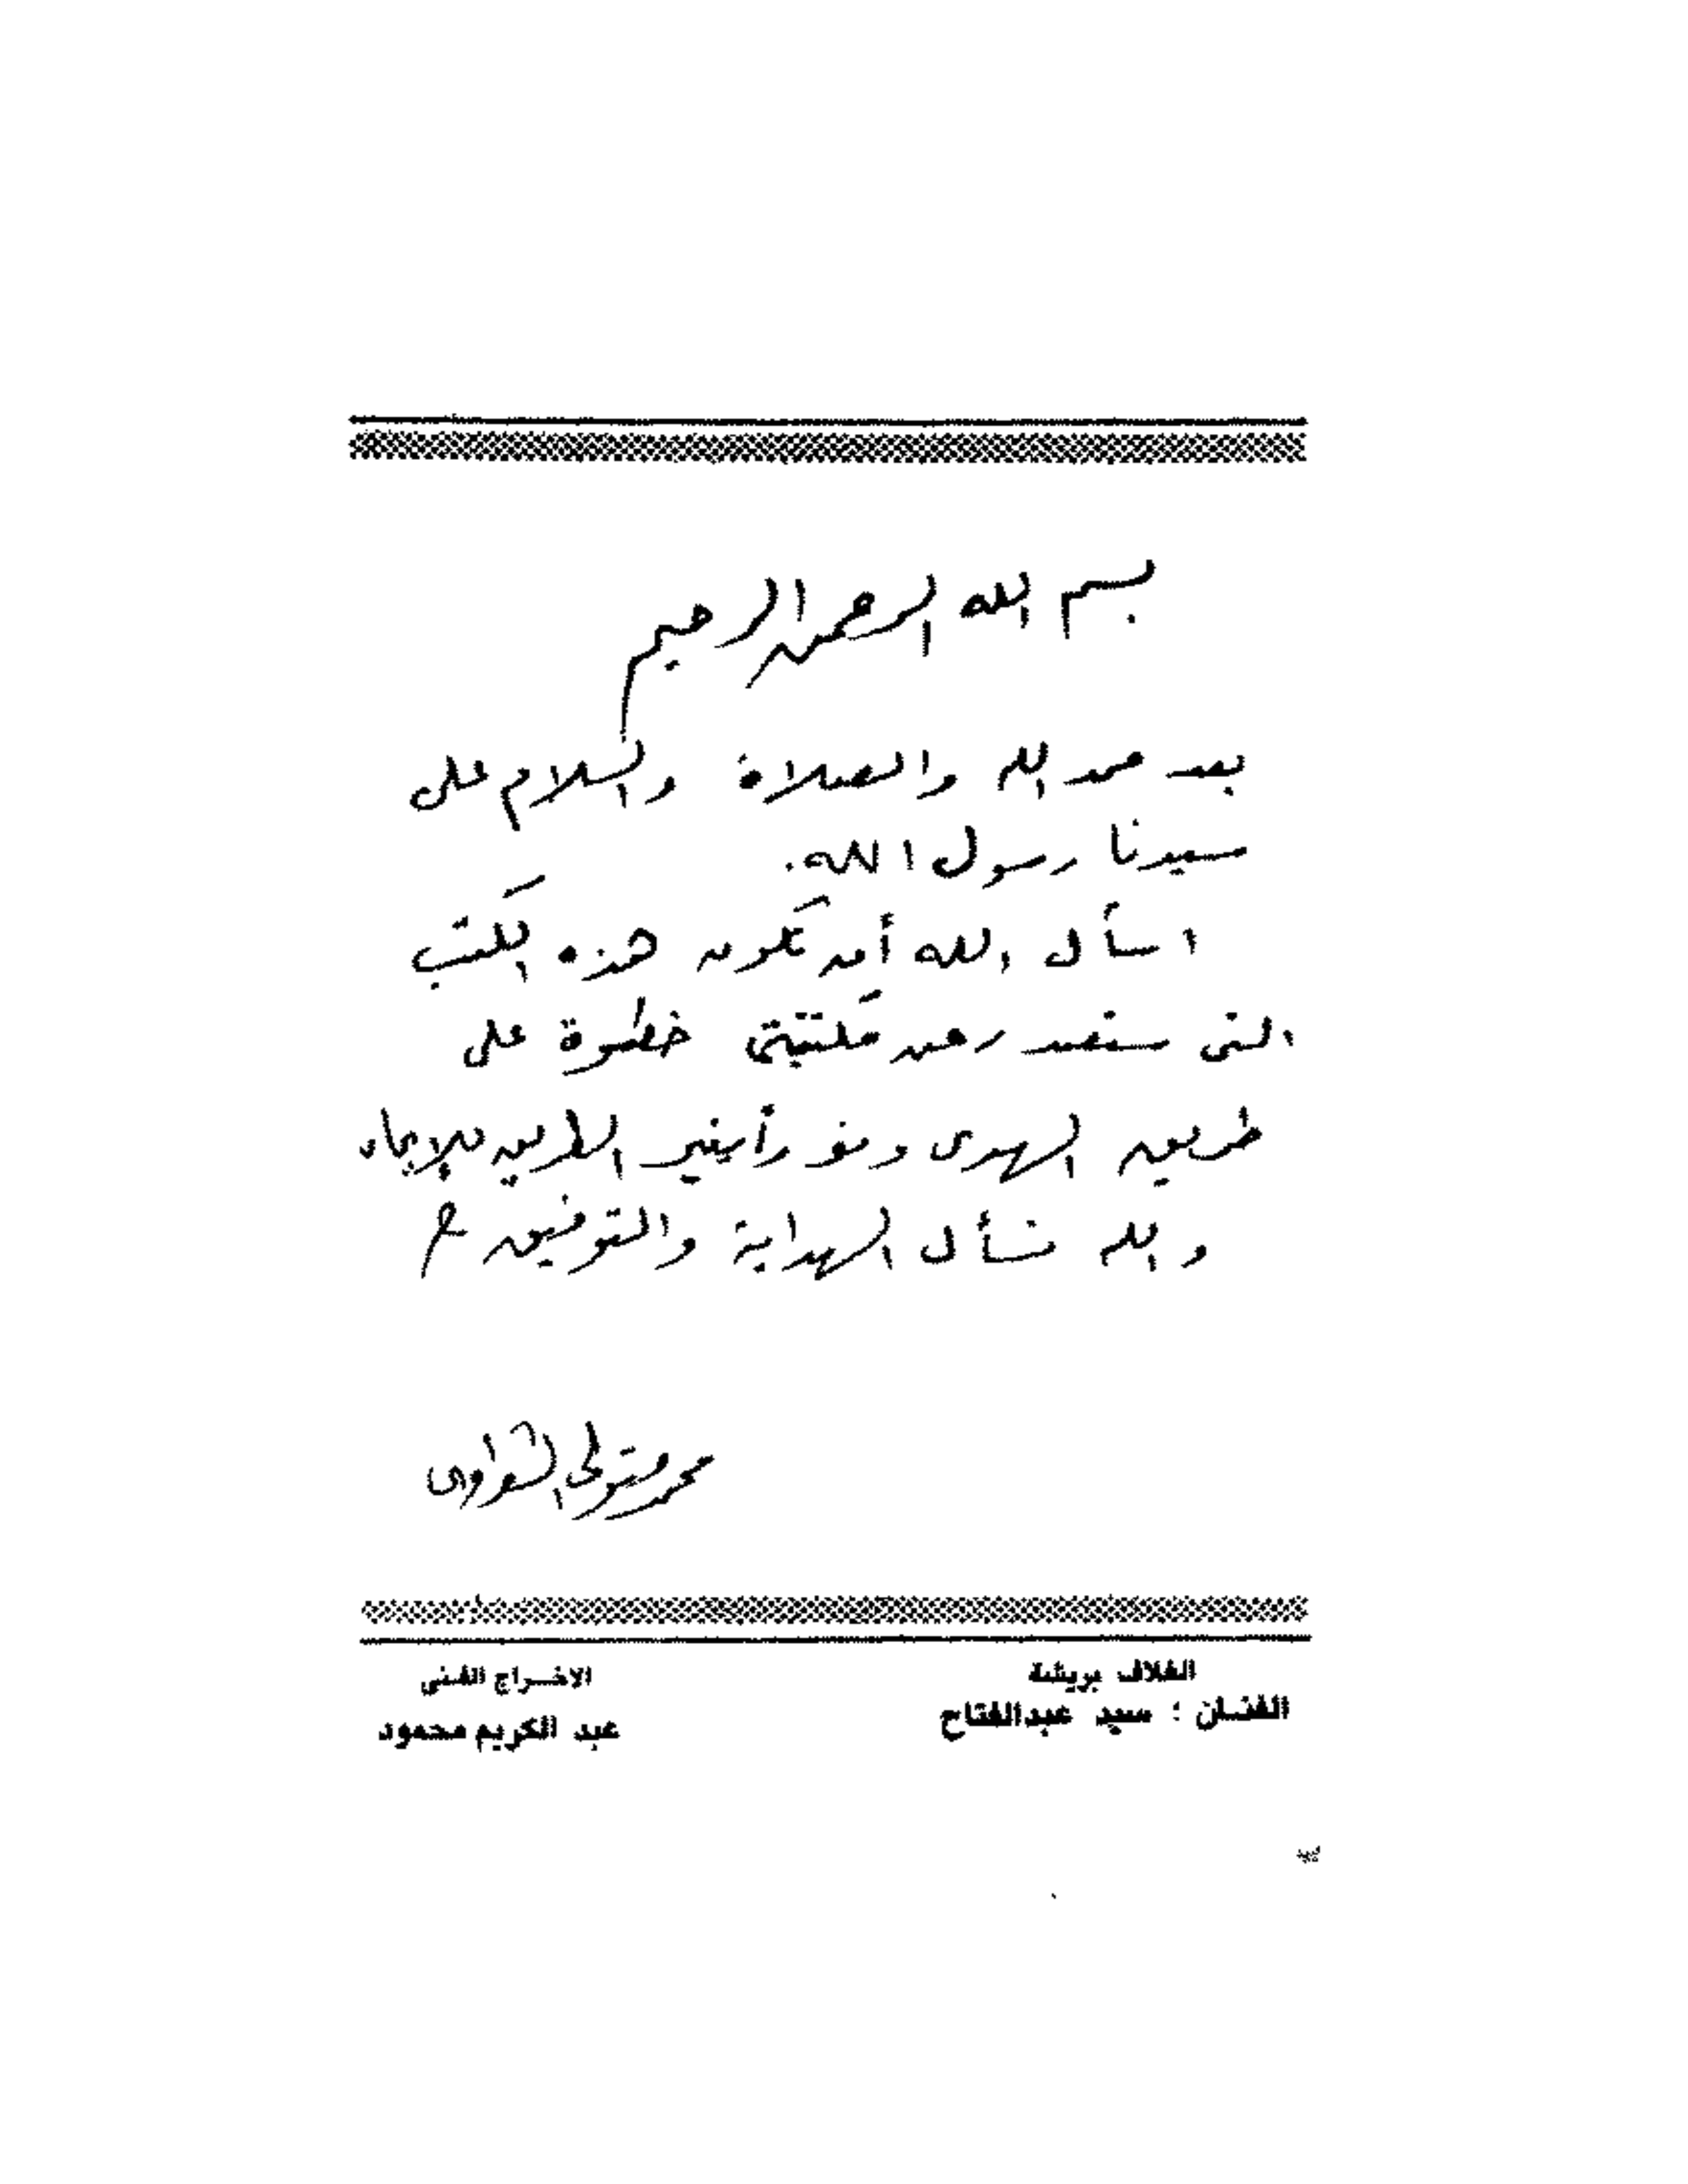 بسم الله الرحمن الرحيم
بعد حمد الله والصلاة والسلام على
سيدنا رسول الله.
اسأل الله أن تكون هذه الكتب
التى ستصدر عن مكتبتى خطوة على
طريق الهدى و الطريق للإيمان
والله نسأل الهداية والتوفيق
محمد متولى الشعراوى
الغلاف بريشة
الفنان : سيد عبدالفتاح
الاخراج الفنى
عبد الكريم محمود